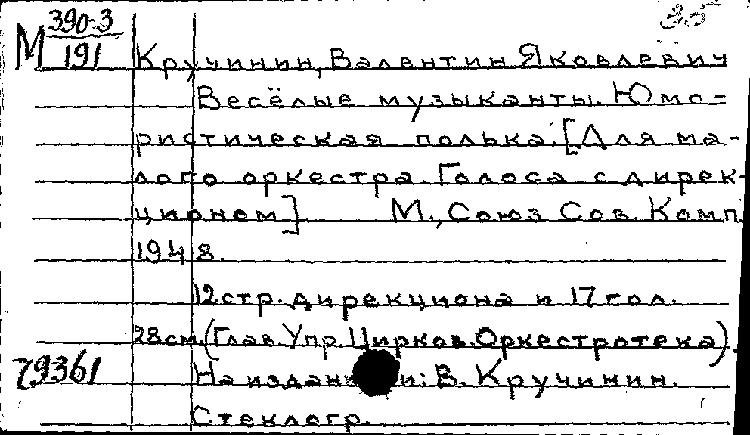 М 390-3
191
35
Кручинин, Валентин Яковлевич
Весёлые музыканты. Юмо-
ристическая полька. [Для ма-
лого оркестра. Голоса с дирек-
ционом] М., Союз Сов. Комп.
1948.
12 стр. дирекциона и 17 гол.
28 см. (Глав. Упр. Цирков. Оркестротека).
79361
На издан и: В. Кручинин.
Стеклогр.